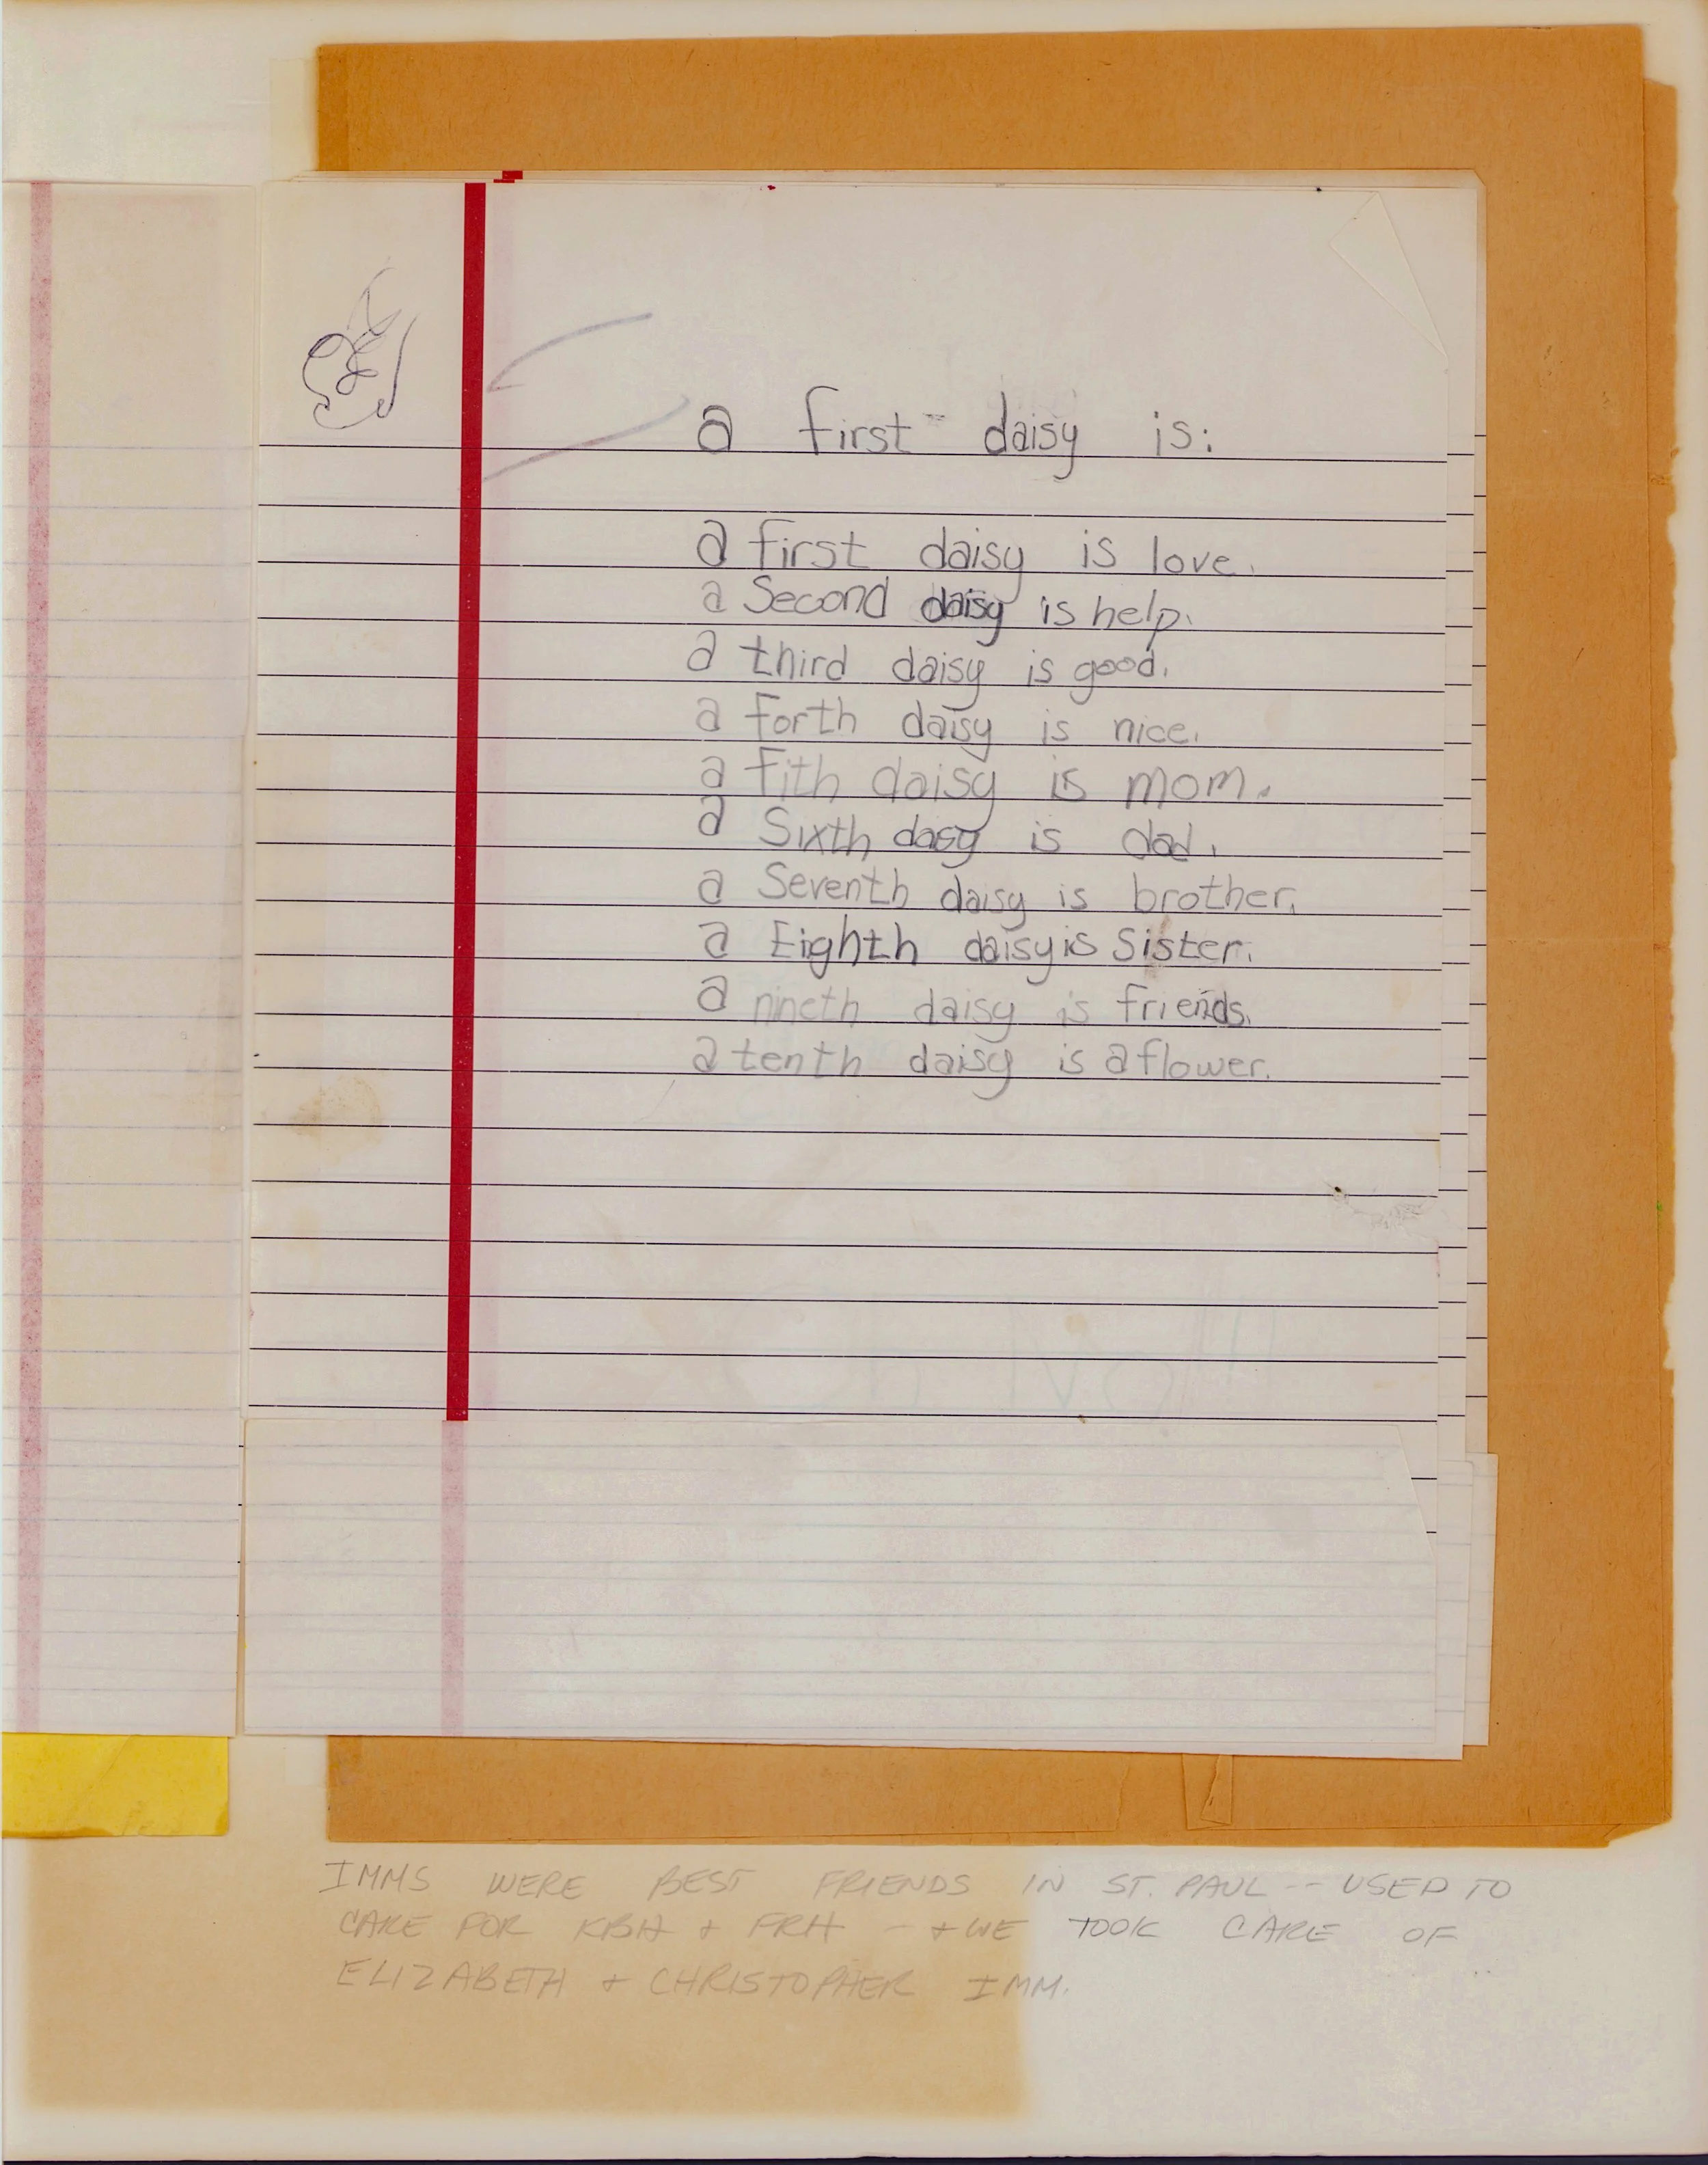 a first daisy is:
a first daisy is love.
a Second daisy is help.
a third daisy is good.
a forth daisy is nice.
a fith daisy is mom.
a Sixth dasy is dad.
a Seventh daisy is brother.
a Eighth daisy is Sister.
a nineth daisy is friends.
a tenth daisy is a flower.
IMMS WERE BEST FRIENDS IN ST. PAUL -- USED TO
CARE FOR KBH + FRH - + WE TOOK CARE OF
ELIZABETH + CHRISTOPHER IMM.